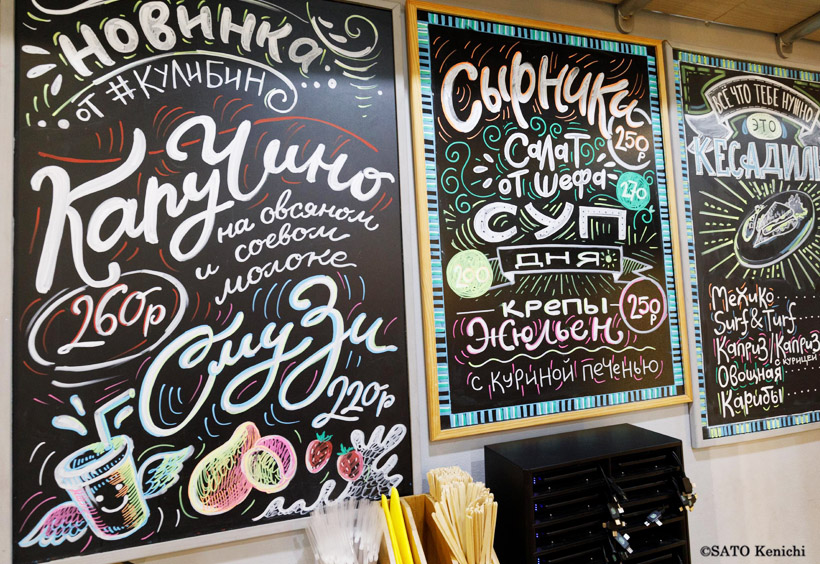 новинка
от #КУЛИБИН
Капучино
на овсяном
и соевом
молоке
260р
Смузи
220р
Сырники
250р
Салат
от шефа
270
суп
дня
200
крепы
Жюльен
250р
с куриной печенью
ВСЁ ЧТО ТЕБЕ НУЖНО
ЭТО
Мехико
Surf&Turf
Каприз/Каприз
с курицей
Овощная
Карибы
©SATO Kenichi